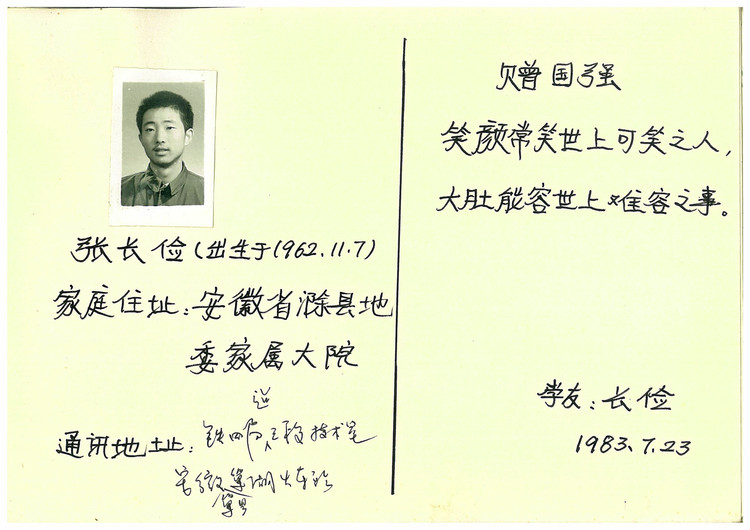 张长俭(出生于1962.11.7)
家庭住址:安徽省滁县地
委家属大院
通讯地址:铁四局三段技术室
安徽巢湖火车站
赠国强
笑颜常笑世上可笑之人,
大肚能容世上难容之事。
学友:长俭
1983.7.23